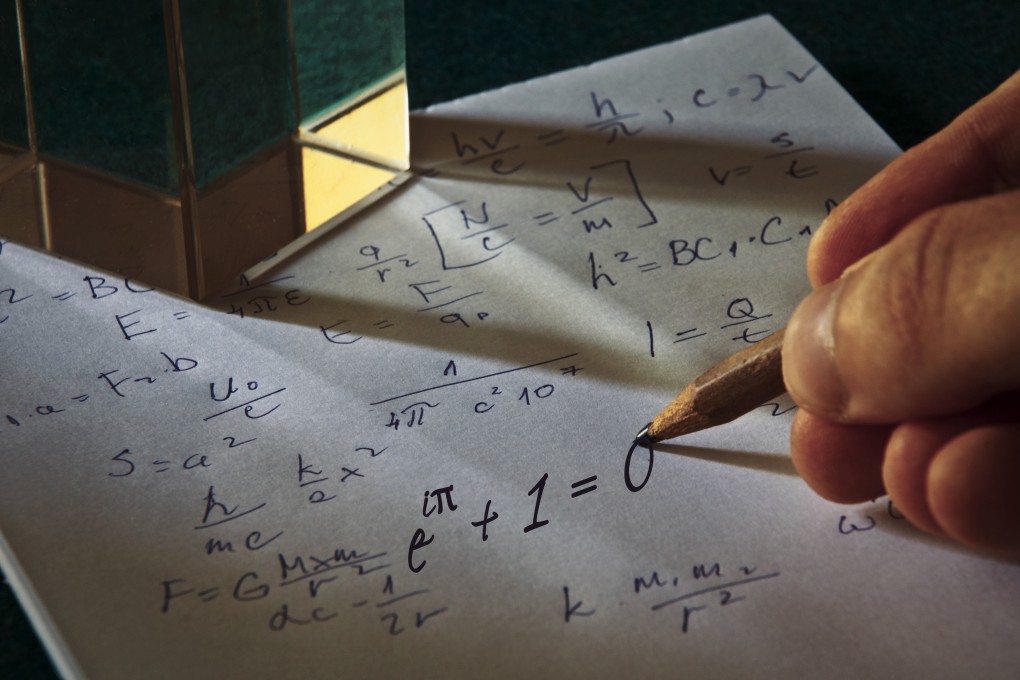 hν/c = h/λ ; c = λν
[N/c = V/m]
v = s/t
q/r²
h² = BC₁ · C₁
² = BC
E = 1/4πε
E = F/q₀
1 = Q/t
₁.a = F₂.b
u₀/e
1/4π c² 10⁷
S = a²
k/2 x²
ħ/mc
e^{iπ} + 1 = 0
F = G M×m/r²
dc - 1/2r
k · m₁m₂/r²
ω